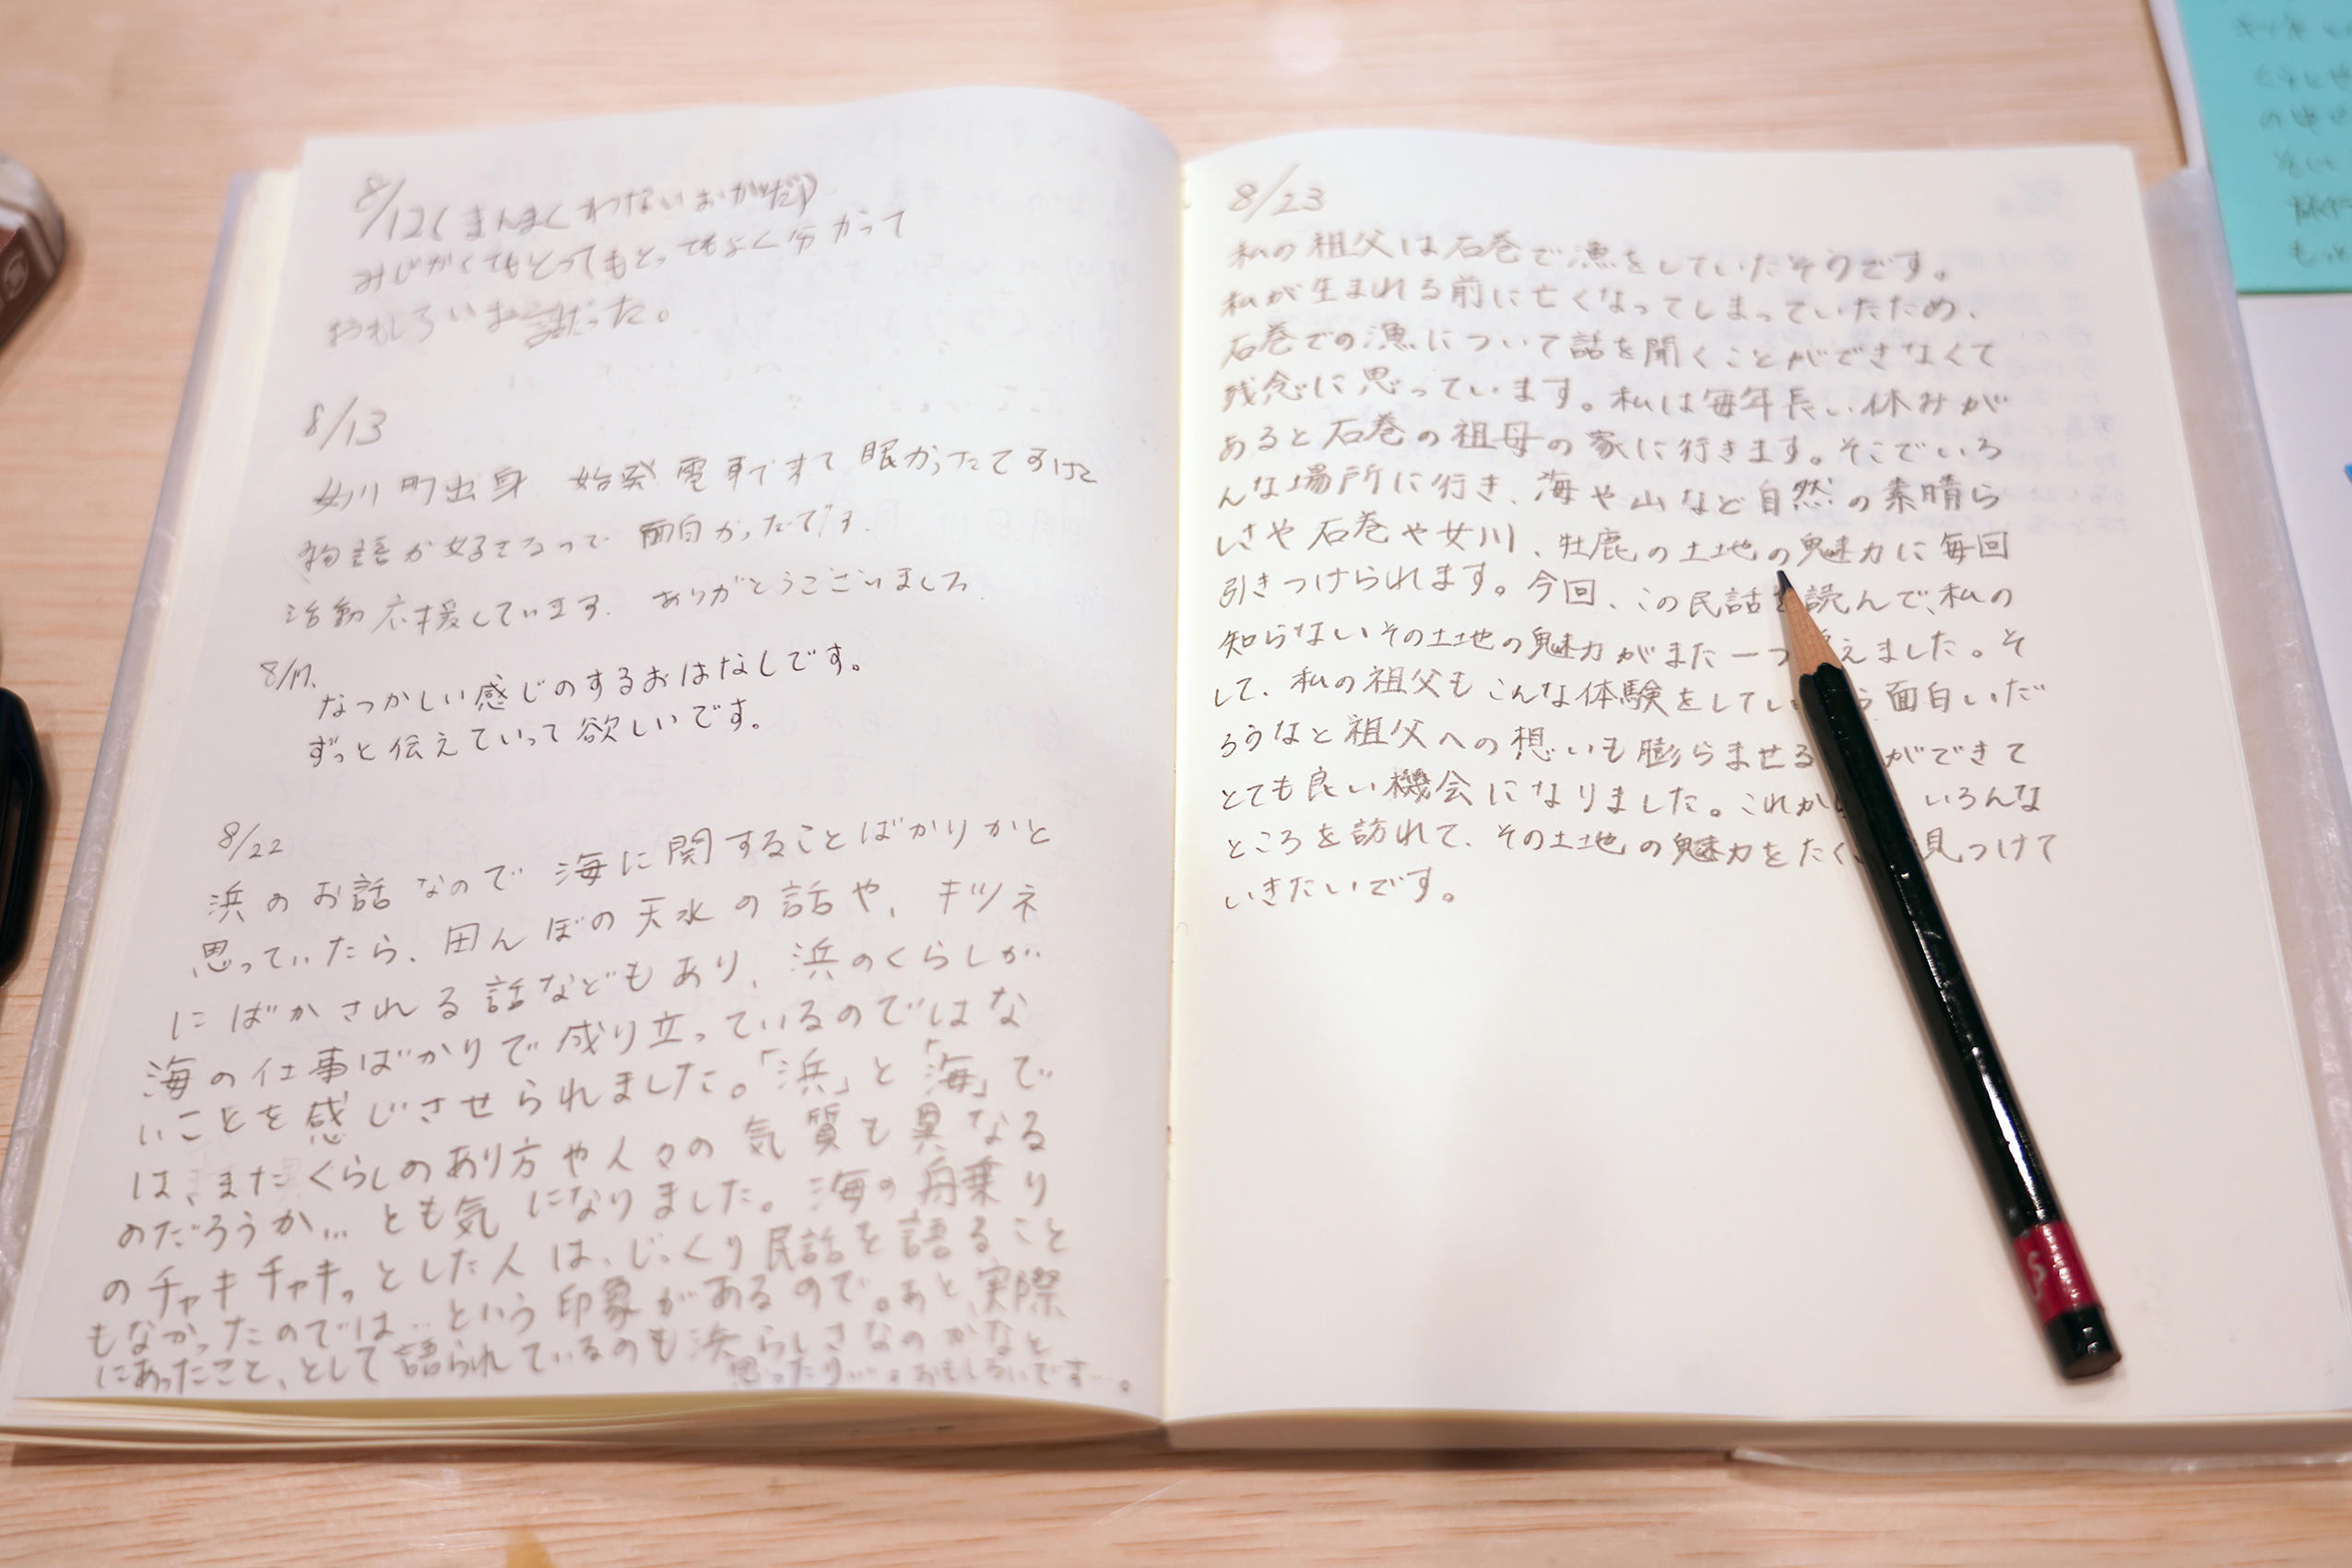 8/12(まんまくわないおかただ)
みじかくてもとってもとってもよく分かって
おもしろいお話だった。
8/13
女川町出身 始発電車できて 眠かったてすけど
物語が好きなので 面白かったです.
活動応援しています. ありがとうございました
8/17.
なつかしい感じのするおはなしです。
ずっと伝えていって欲しいです。
8/22
浜のお話なので海に関することばかりかと
思っていたら、田んぼの天水の話や、キツネ
にばかされる話などもあり、浜のくらしが
海の仕事ばかりで成り立っているのではな
いことを感じさせられました。「浜」と「海」で
は、またくらしのあり方や人々の気質も異なる
のだろうか…とも気になりました。海の舟乗り
のチャキチャキッとした人は、じっくり民話を語ること
もなかったのでは…という印象があるので。あと、実際
にあったこと、として語られているのも浜らしさなのかなと
思ったり…。おもしろいです…。
8/23
私の祖父は石巻で漁をしていたそうです。
私が生まれる前に亡くなってしまっていたため、
石巻での漁について話を聞くことができなくて
残念に思っています。私は毎年長い休みが
あると石巻の祖母の家に行きます。そこでいろ
んな場所に行き、海や山など自然の素晴ら
しさや石巻や女川、牡鹿の土地の魅力に毎回
引きつけられます。今回、この民話を読んで、私の
知らないその土地の魅力がまた一つ えました。そ
して、私の祖父もこんな体験をしてい う面白いだ
ろうなと祖父への想いも膨らませる ができて
とても良い機会になりました。これか いろんな
ところを訪れて、その土地の魅力をたく 見つけて
いきたいです。